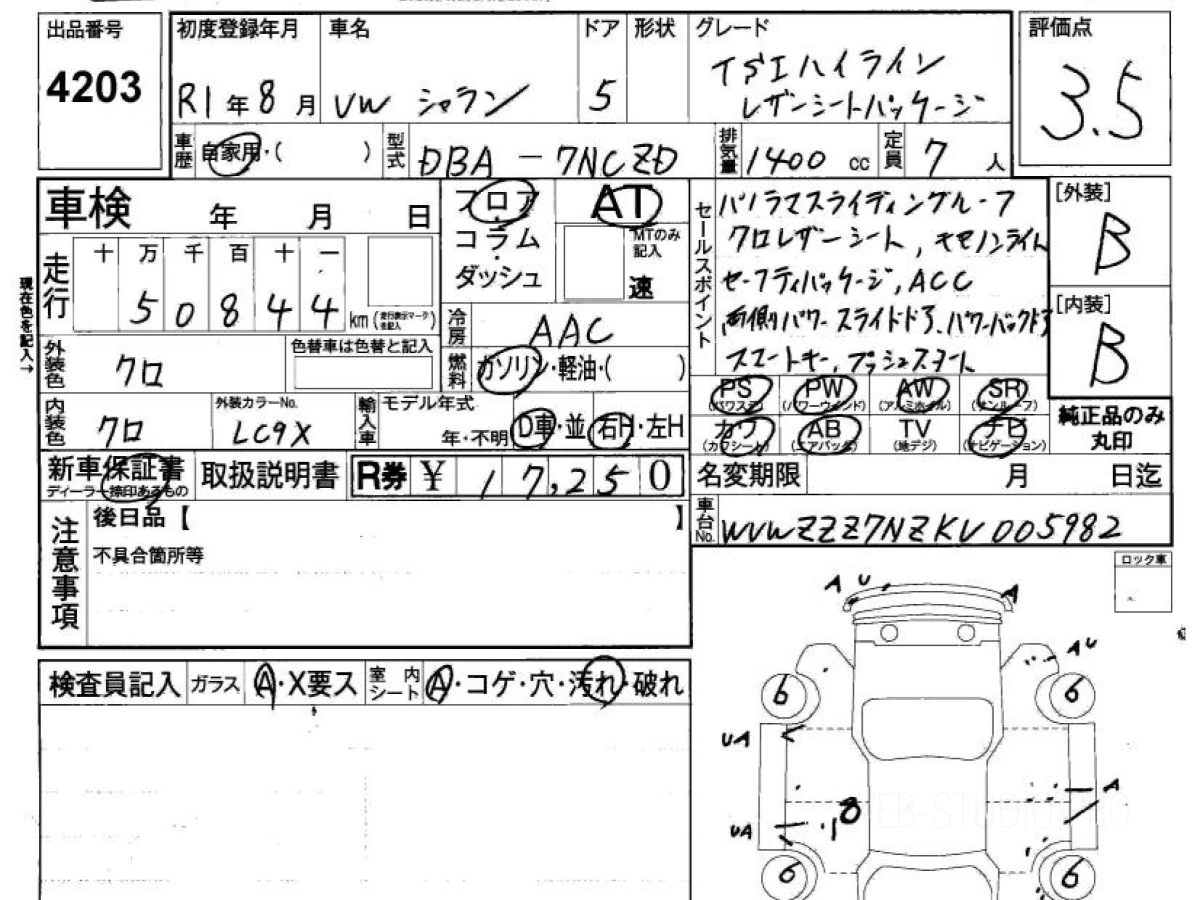 出品番号
4203
初度登録年月
R1年8月
車名
VW シャラン
ドア
5
形状
グレード
TSIハイライン
レザーシートパッケージ
評価点
3.5
車歴
自家用・( )
型式
DBA－7NCZD
排気量
1400 cc
定員
7人
車検 年 月 日
走行
十 万 千 百 十 一
5 0 8 4 4
km (走行表示マーク後記入)
現在色を記入→
フロア
コラム
・
ダッシュ
AT
MTのみ
記入
速
冷房
AAC
燃料
ガソリン・軽油・( )
外装色
クロ
色替車は色替と記入
内装色
クロ
外装カラーNo.
LC9X
輸入車
モデル年式
年・不明
D車・並
右H・左H
新車保証書
ディーラー捺印あるもの
取扱説明書
R券 ¥ 17,250
セールスポイント
パノラマスライディングルーフ
クロレザーシート, キセノンライト
セーフティパッケージ, ACC
両側パワースライドドア, パワーバックドア
スマートキー, プッシュスタート
[外装]
B
[内装]
B
PS
(パワステ)
PW
(パワーウインド)
AW
(アルミホイル)
SR
(サンルーフ)
カワ
(カワシート)
AB
(エアバッグ)
TV
(地デジ)
ナビ
(ナビゲーション)
純正品のみ
丸印
名変期限 月 日迄
車台No.
WVWZZZ7NZKV005982
注意事項
後日品【 】
不具合箇所等
ロック車
検査員記入
ガラス
A・X要ス
室内
シート
A・コゲ・穴・汚れ・破れ
A U
A
A U
6
6
UA
A
8
UA
6
6